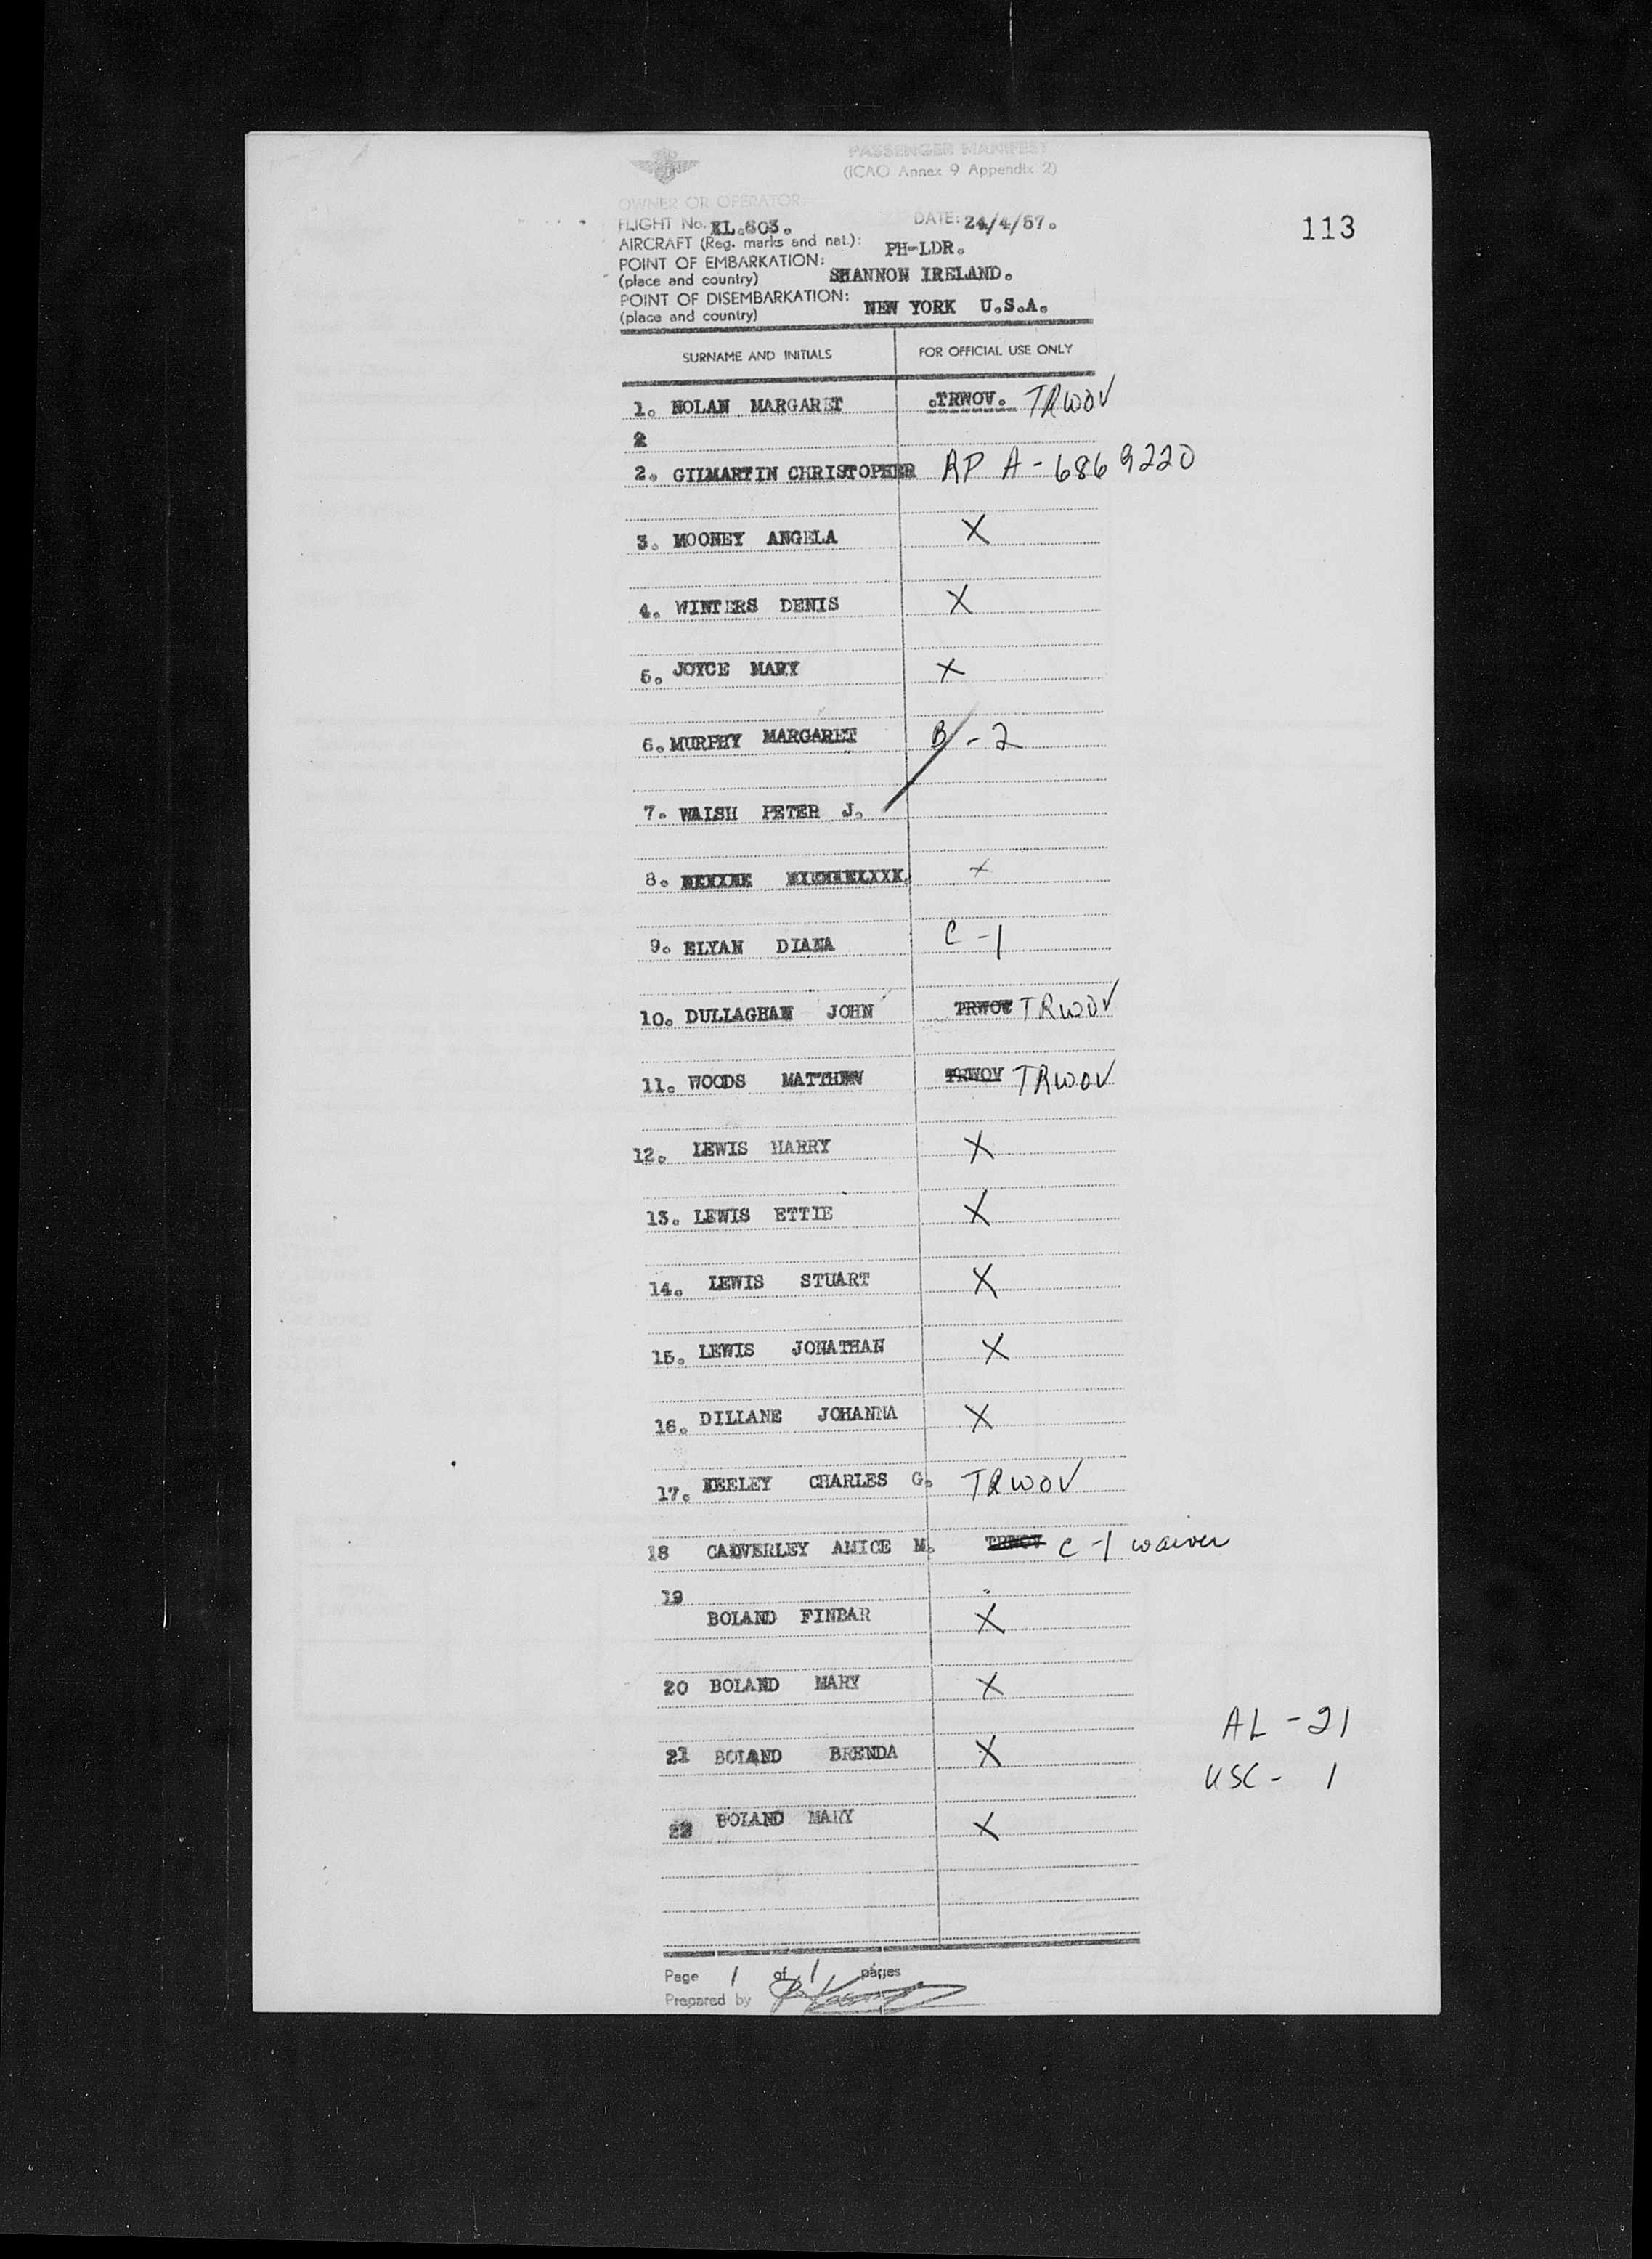 PASSENGER MANIFEST
(ICAO Annex 9 Appendix 2)
OWNER OR OPERATOR:
FLIGHT No. KL.603. DATE: 24/4/57.
113
AIRCRAFT (Reg. marks and nat.): PH-LDR.
POINT OF EMBARKATION:
(place and country) SHANNON IRELAND.
POINT OF DISEMBARKATION:
(place and country) NEW YORK U.S.A.
SURNAME AND INITIALS FOR OFFICIAL USE ONLY
1. NOLAN MARGARET .TRWOV. TRWOV
2
2. GILMARTIN CHRISTOPHER RP A-6869220
3. MOONEY ANGELA X
4. WINTERS DENIS X
5. JOYCE MARY X
6. MURPHY MARGARET B-2
7. WALSH PETER J.
8. X
9. ELYAN DIANA C-1
10. DULLAGHAN JOHN TRWOV TRWOV
11. WOODS MATTHEW TRWOV TRWOV
12. LEWIS HARRY X
13. LEWIS ETTIE X
14. LEWIS STUART X
15. LEWIS JONATHAN X
16. DILLANE JOHANNA X
17. NEELEY CHARLES G. TRWOV
18 CALVERLEY AMICE M. TRWOV C-1 waiver
19
BOLAND FINBAR X
20 BOLAND MARY X
AL - 21
21 BOLAND BRENDA X
USC - 1
22 BOLAND MARY X
Page 1 of 1 pages
Prepared by